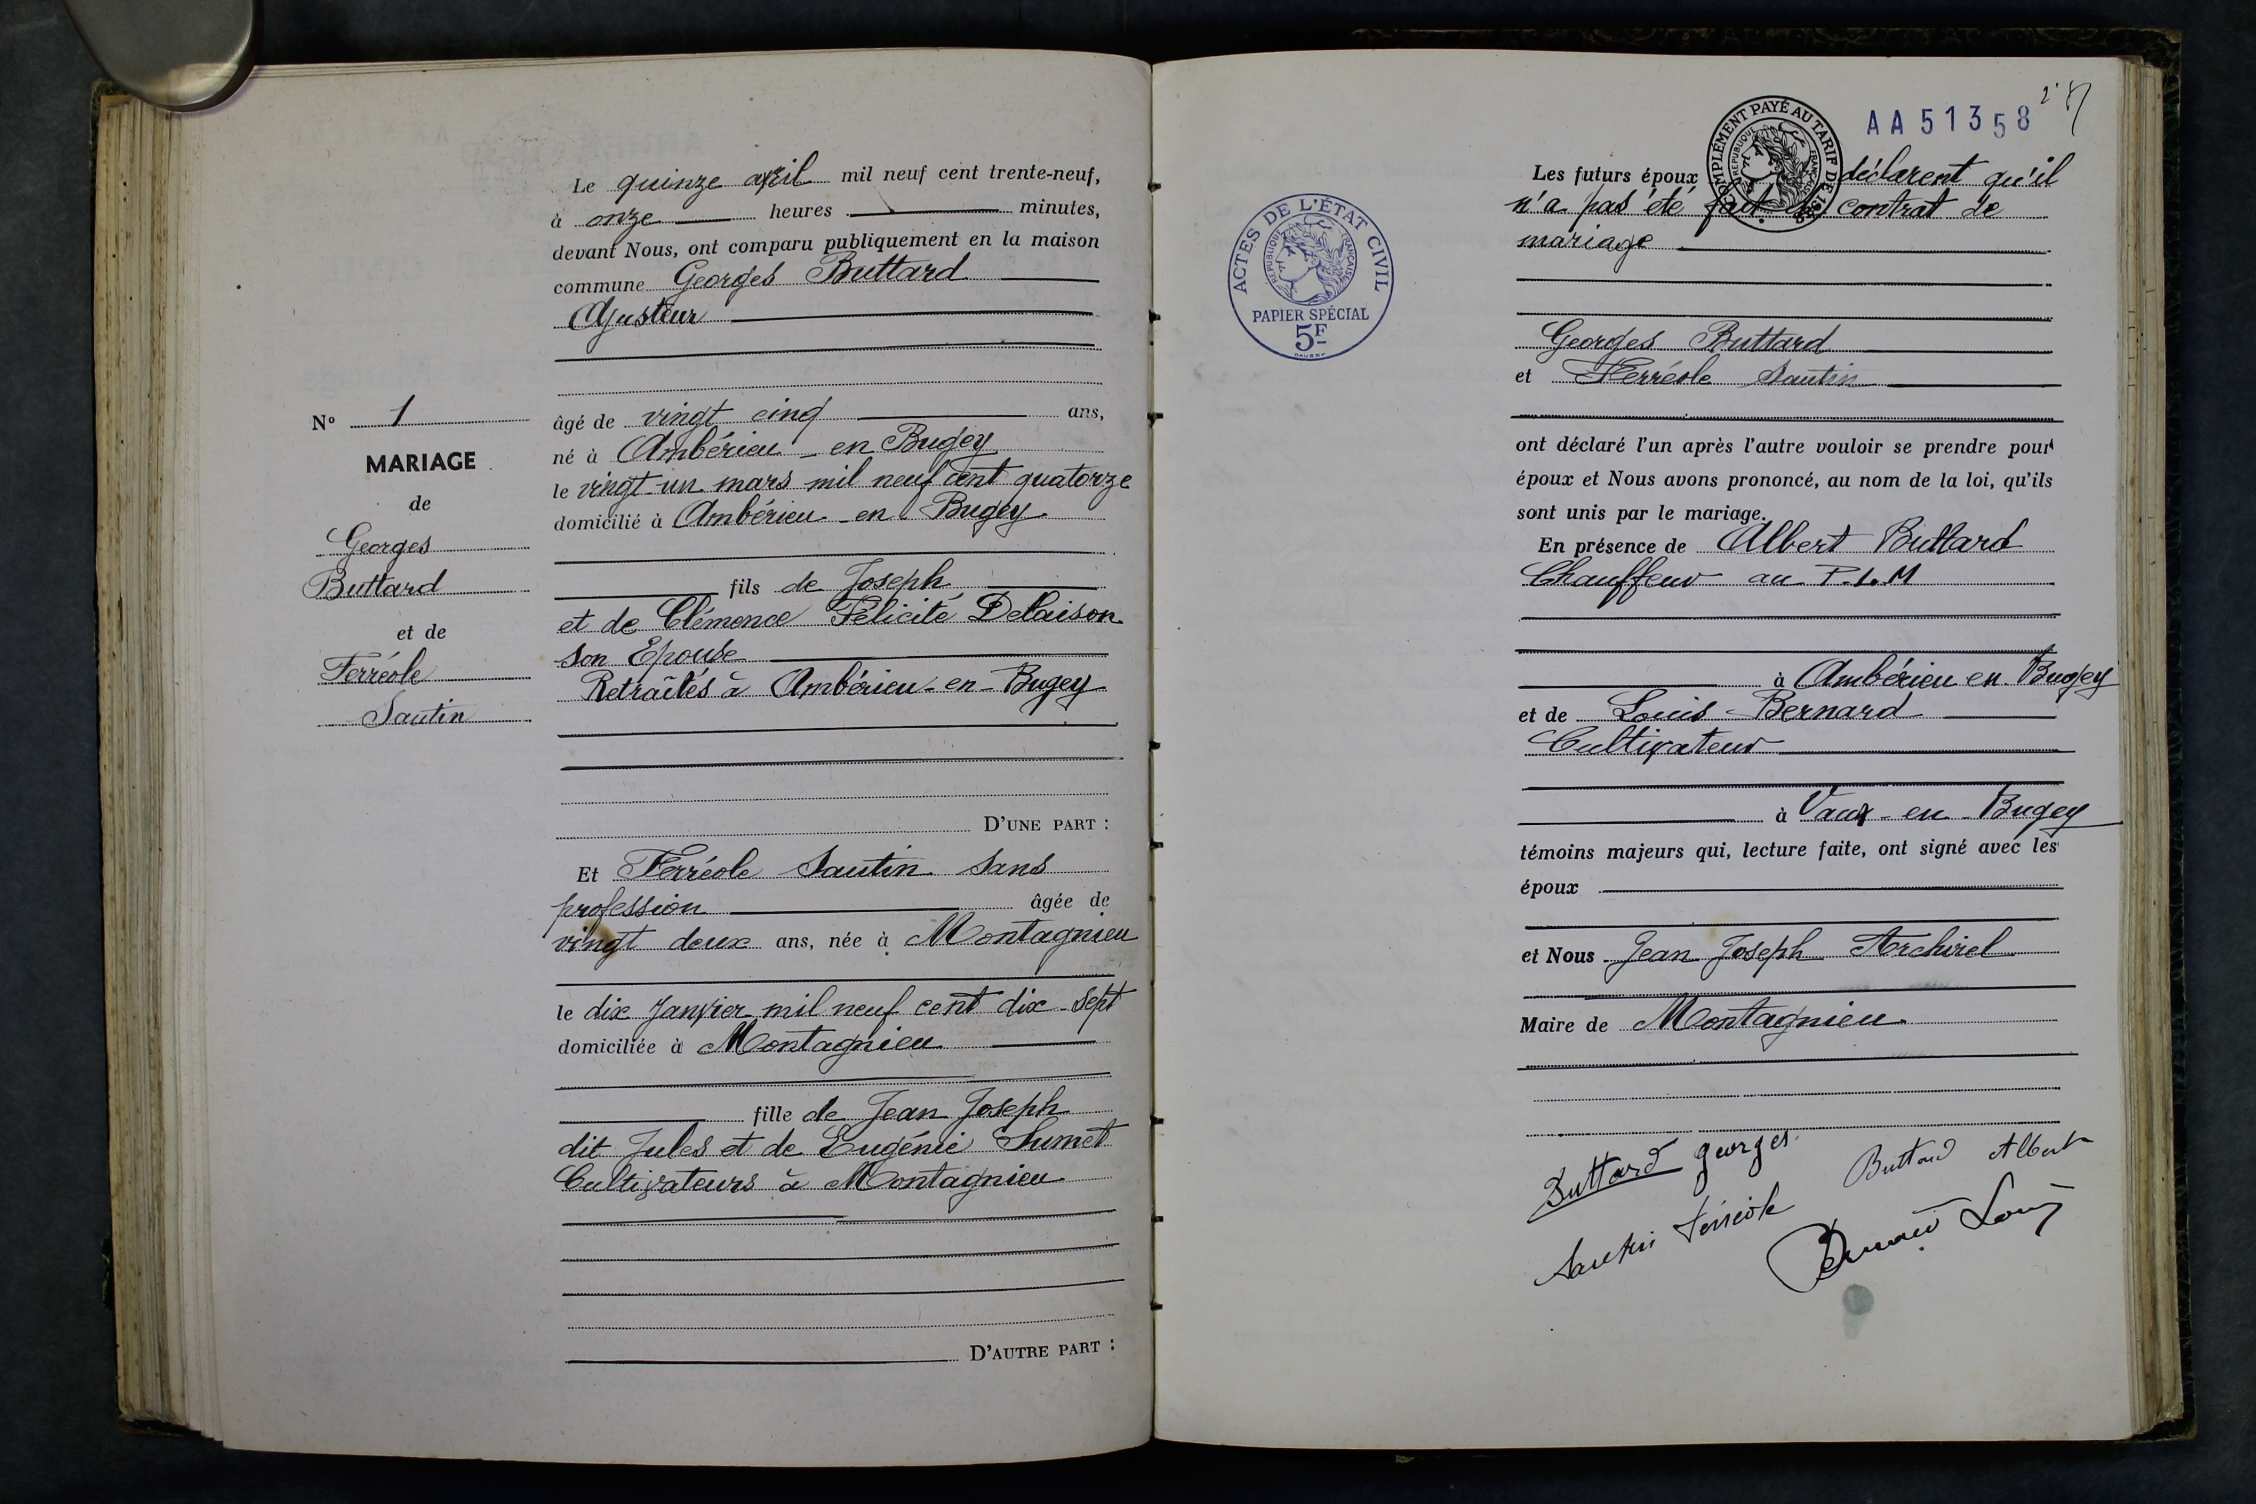 Le quinze avril mil neuf cent trente-neuf,
à onze heures minutes,
devant Nous, ont comparu publiquement en la maison
commune Georges Buttard
Ajusteur
Nº 1
MARIAGE
de
Georges
Buttard
et de
Ferréole
Sautin
âgé de vingt cinq ans,
né à Ambérieu - en Bugey
le vingt-un mars mil neuf cent quatorze
domicilié à Ambérieu - en Bugey
fils de Joseph
et de Clémence Félicité Delaison
son Epouse
Retraités à Ambérieu - en - Bugey
D'UNE PART :
Et Ferréole Sautin sans
profession âgée de
vingt deux ans, née à Montagnieu
le dix Janvier mil neuf cent dix-sept
domiciliée à Montagnieu
fille de Jean Joseph
dit Jules et de Eugénie Sumet
Cultivateurs à Montagnieu
D'AUTRE PART :
ACTES DE L'ÉTAT CIVIL
RÉPUBLIQUE FRANÇAISE
PAPIER SPÉCIAL
5F
COMPLÉMENT PAYÉ AU TARIF DE
RÉPUBLIQUE FRANÇAISE
AA51358
Les futurs époux déclarent qu'il
n'a pas été fait de contrat de
mariage
Georges Buttard
et Ferréole Sautin
ont déclaré l'un après l'autre vouloir se prendre pour
époux et Nous avons prononcé, au nom de la loi, qu'ils
sont unis par le mariage.
En présence de Albert Buttard
Chauffeur au P.L.M
à Ambérieu en Bugey
et de Louis Bernard
Cultivateur
à Vaux - en - Bugey
témoins majeurs qui, lecture faite, ont signé avec les
époux
et Nous Jean Joseph Archirel
Maire de Montagnieu
Buttard georges
Buttard Albert
Sautin Ferréole
Bernard Louis